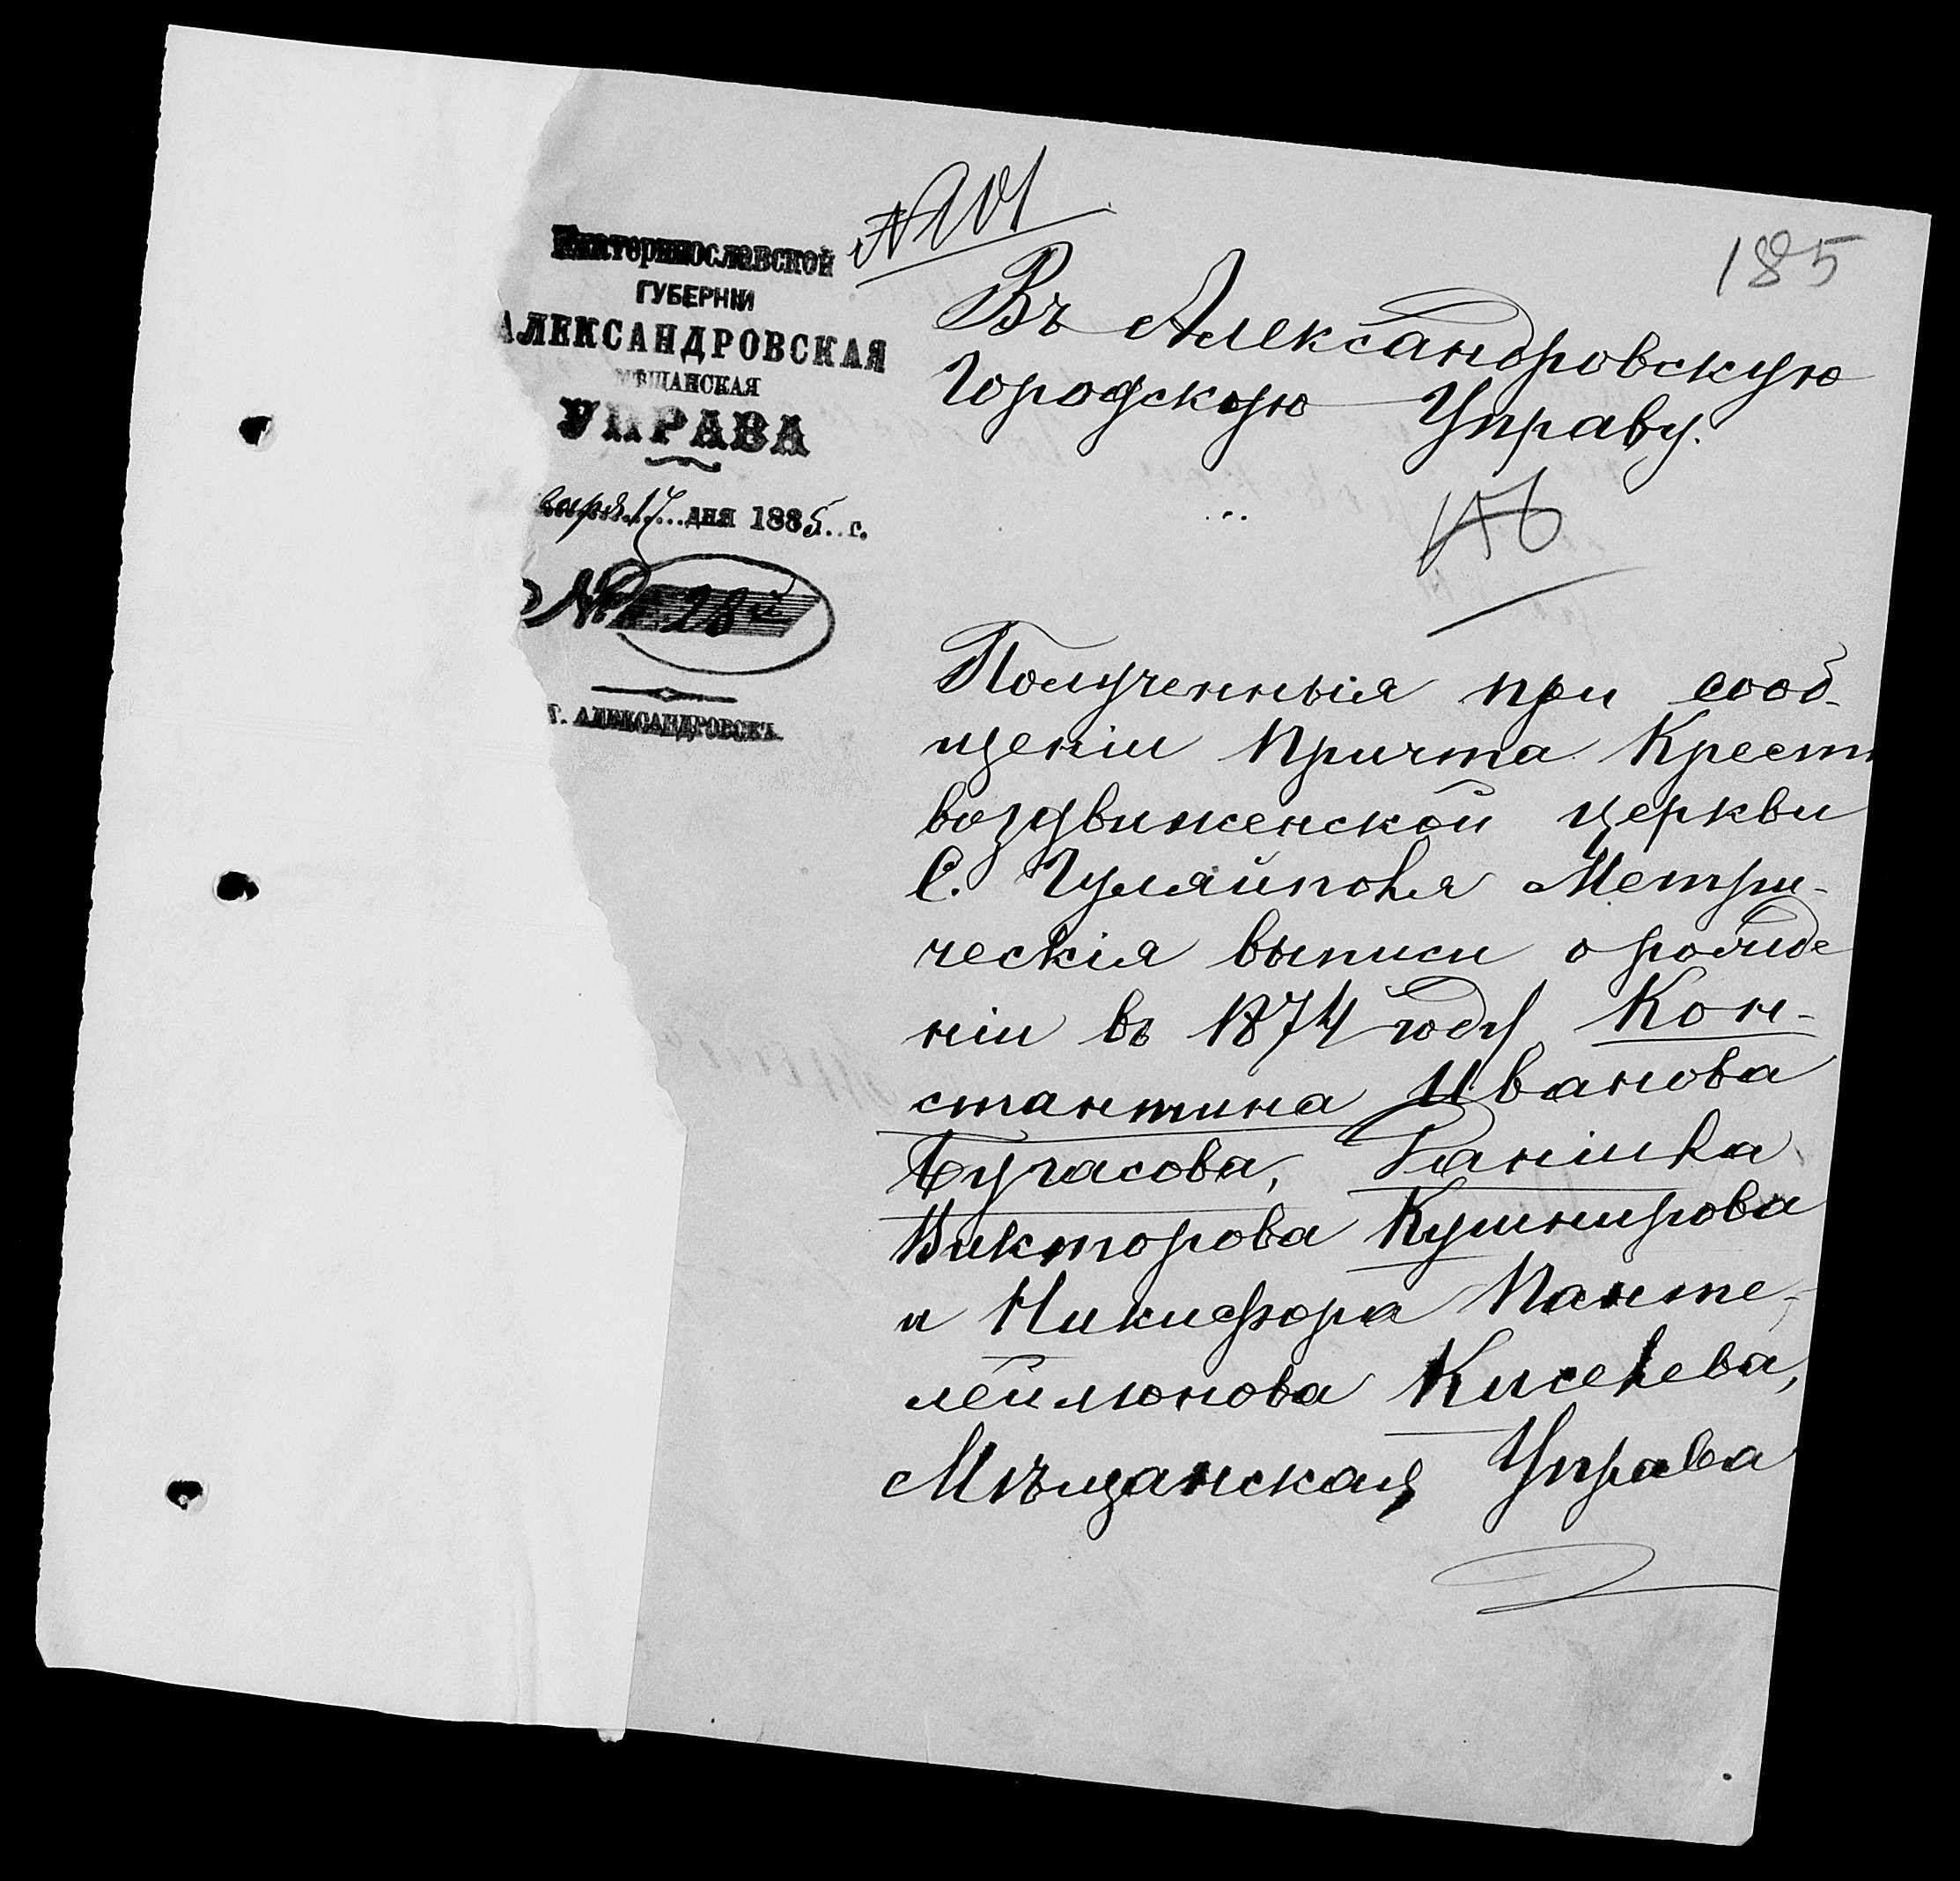 Екатеринославской
ГУБЕРНІИ
АЛЕКСАНДРОВСКАЯ
МѢЩАНСКАЯ
УПРАВА
варя 17 дня 1885 г.
№ 28й
г. АЛЕКСАНДРОВСКЪ.
№ 101
185
Въ Александровскую
Городскую Управу.
Полученныія при сооб-
щеніи Причта Кресто
воздвиженской церкви
С. Гуляйполя Метри-
ческія выписи о рожде
ніи въ 1874 году Кон-
стантина Иванова
Бугасова, Даніила
Викторова Кушнирова
и Никифора Панте-
леймонова Киселева,
Мѣщанская Управа